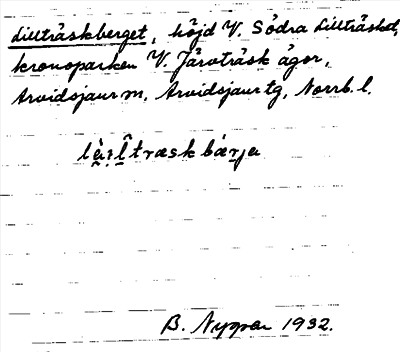 Lillträskberget, höjd V. Södra Lillträsket,
kronoparken V. Järvträsk ägor,
Arvidsjaur m, Arvidsjaur tg, Norrb. l.
träskbärja
B. Nygren 1932.